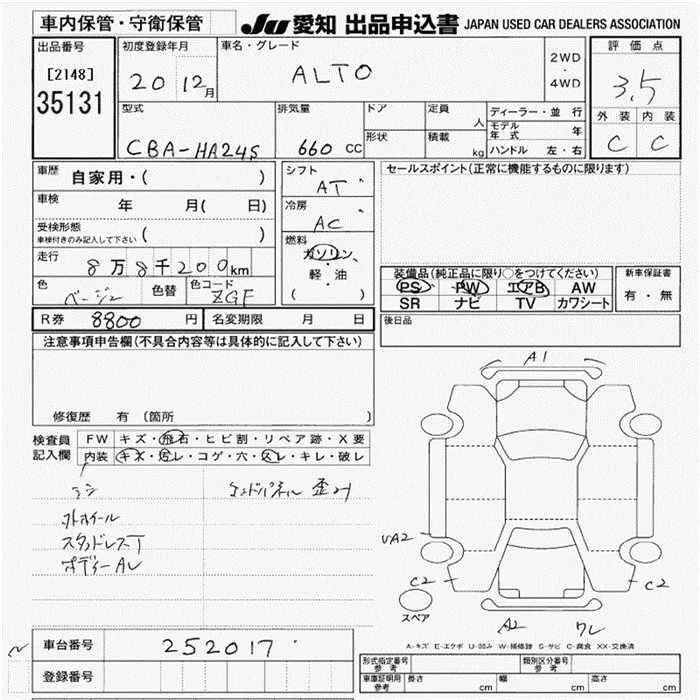 車内保管・守衛保管 JU 愛知 出品申込書 JAPAN USED CAR DEALERS ASSOCIATION
出品番号 初度登録年月 車名・グレード 2WD・4WD 評価点
[2148] 20 12月 ALTO 3.5
35131 外装 内装
型式 排気量 ドア 定員 人 ディーラー・並行 C C
モデル年式 年
CBA-HA24S 660 CC 形状 積載 kg ハンドル 左・右
車歴 自家用・( ) シフト AT セールスポイント(正常に機能するものに限ります)
車検 年 月( 日) 冷房 AC
受検形態 ( )
車検付きのみ記入して下さい
走行 8万8千200km 燃料 ガソリン・軽・油 ( )
装備品(純正品に限り○をつけてください) 新車保証書
色 ベージュ 色替 色コード ZGF PS PW エアB AW 有・無
SR ナビ TV カワシート
R券 8800円 名変期限 月 日 後日品
注意事項申告欄(不具合内容等は具体的に記入して下さい)
A1
修復歴 有 〔箇所
検査員記入欄 FW キズ・飛石・ヒビ割・リペア跡・X要
内装 キズ・ヨレ・コゲ・穴・スレ・キレ・破レ
エンドパネル 歪
UA2
C2 C2
スペア
A2 ワレ
A-キズ E-エクボ U-凹み W-補修跡 S-サビ C-腐食 XX-交換済
車台番号 252017
形式指定番号 参考 類別区分番号 参考
登録番号 車庫証明用 参考 長さ cm 幅 cm 高さ cm